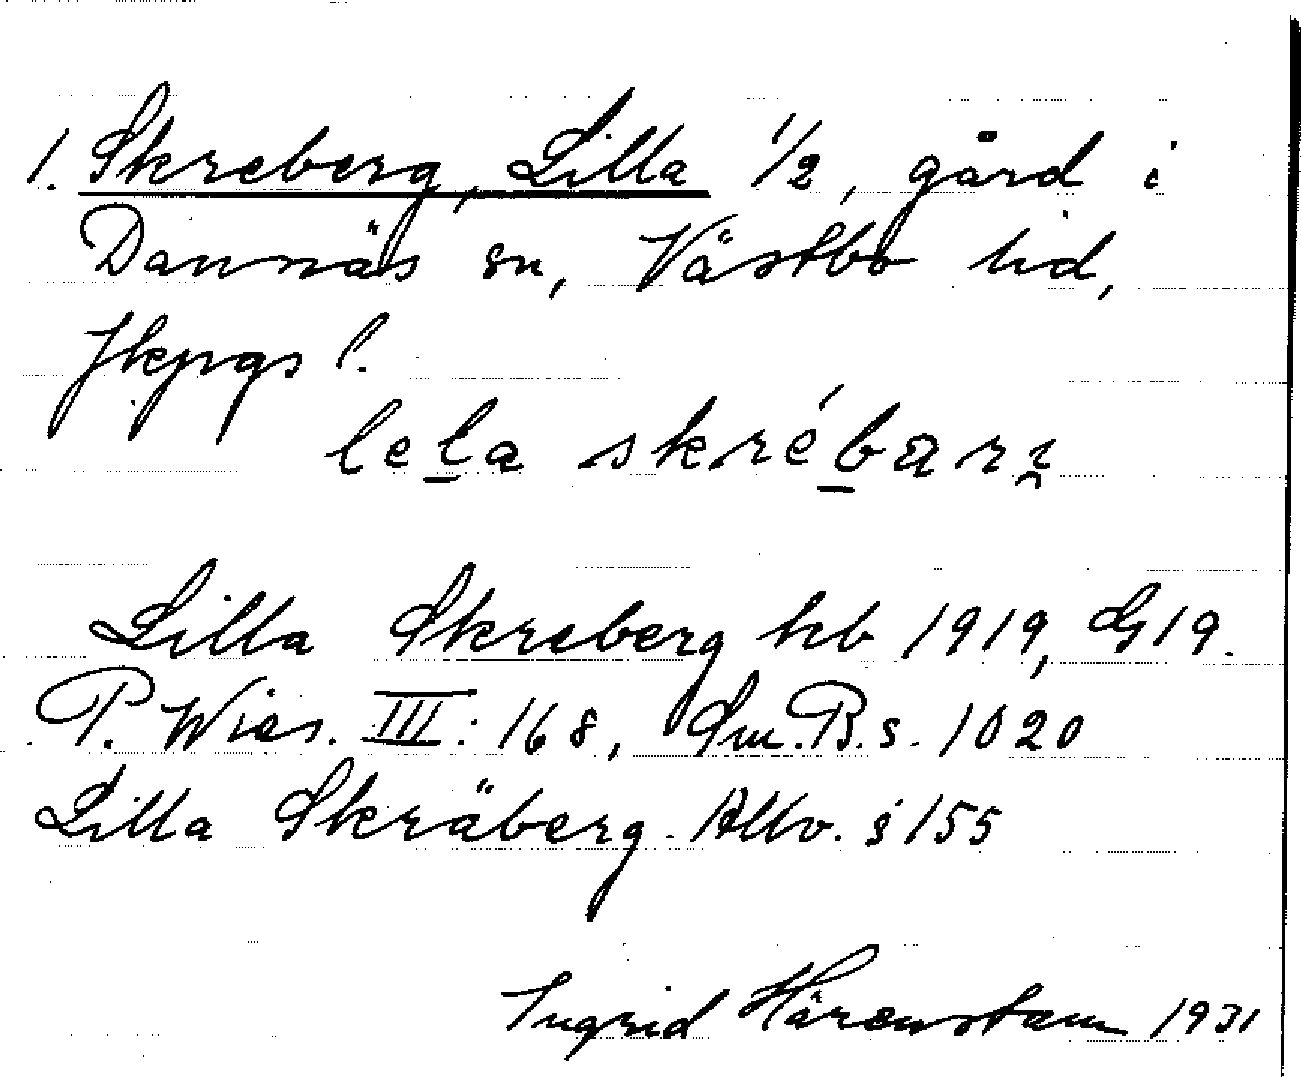 1. Skreberg, Lilla 1/2, gård i
Dannäs sn, Västbo hd,
Jkpgs l.
lela skrébarı
Lilla Skreberg hb 1919, G19.
P. Wies. III: 168, Sm.B. s. 1020
Lilla Skräberg Allv. s 155
Ingrid Härenstam 1931